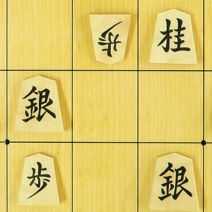 歩 桂
銀
歩 銀